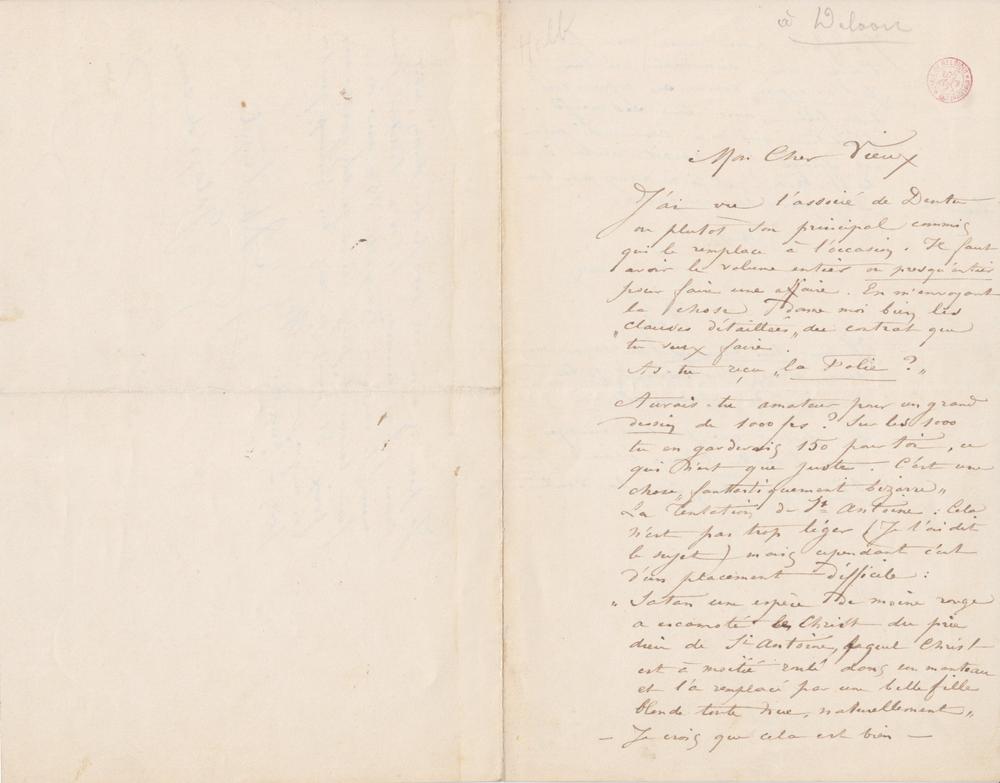 à Delvort
Mon Cher Vieux
J'ai vu l'associé de Dentu
ou plutot son principal commis
qui le remplace à l'occasion. Il faut
avoir le volume entier ou presqu'entier
pour faire une affaire. En m'envoyant
la chose donne moi bien les
"clauses détaillées" du contrat que
tu veux faire.
As-tu reçu "la Folie ?"
Aurais-tu amateur pour un grand
dessin de 1000 frs ? Sur les 1000
tu en garderais 150 pour toi, ce
qui n'est que juste. C'est une
chose "fantastiquement bizarre"
La Tentation de St Antoine : Cela
n'est pas trop léger (Je t'ai dit
le sujet) mais cependant c'est
d'un placement difficile :
"Satan une espèce de moine rouge
a escamoté le Christ du prie
dieu de St Antoine, lequel Christ
est à moitié roulé dans un manteau
et l'a remplacé par une belle fille
blonde toute nue, naturellement"
— Je crois que cela est bien —